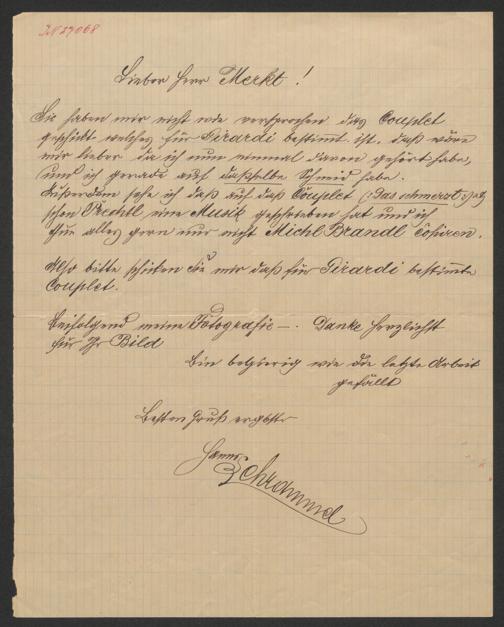 IN 27068
Lieber Herr Merkt!
Sie haben mir nicht wie versprochen das Couplet
geschikt welches für Girardi bestimmt ist, daß wäre
mir lieber da ich nun einmal davon gehört habe,
und ich gerade auf dasselbe Schneid habe.
Außerdem sehe ich daß auf daß Couplet (:Das schmerzt:)
schon Prechtl eine Musik geschrieben hat und ich
thue alles gern nur nicht Michl Brandl Copiren.
Also bitte schicken Sie mir daß für Girardi bestimmte
Couplet.
Beifolgend meine Fotografie —. Danke herzlichst
für Ihr Bild
Bin begierig wie die letzte Arbeit
gefällt
Besten Gruß ergebster
Hanns
Schrammel